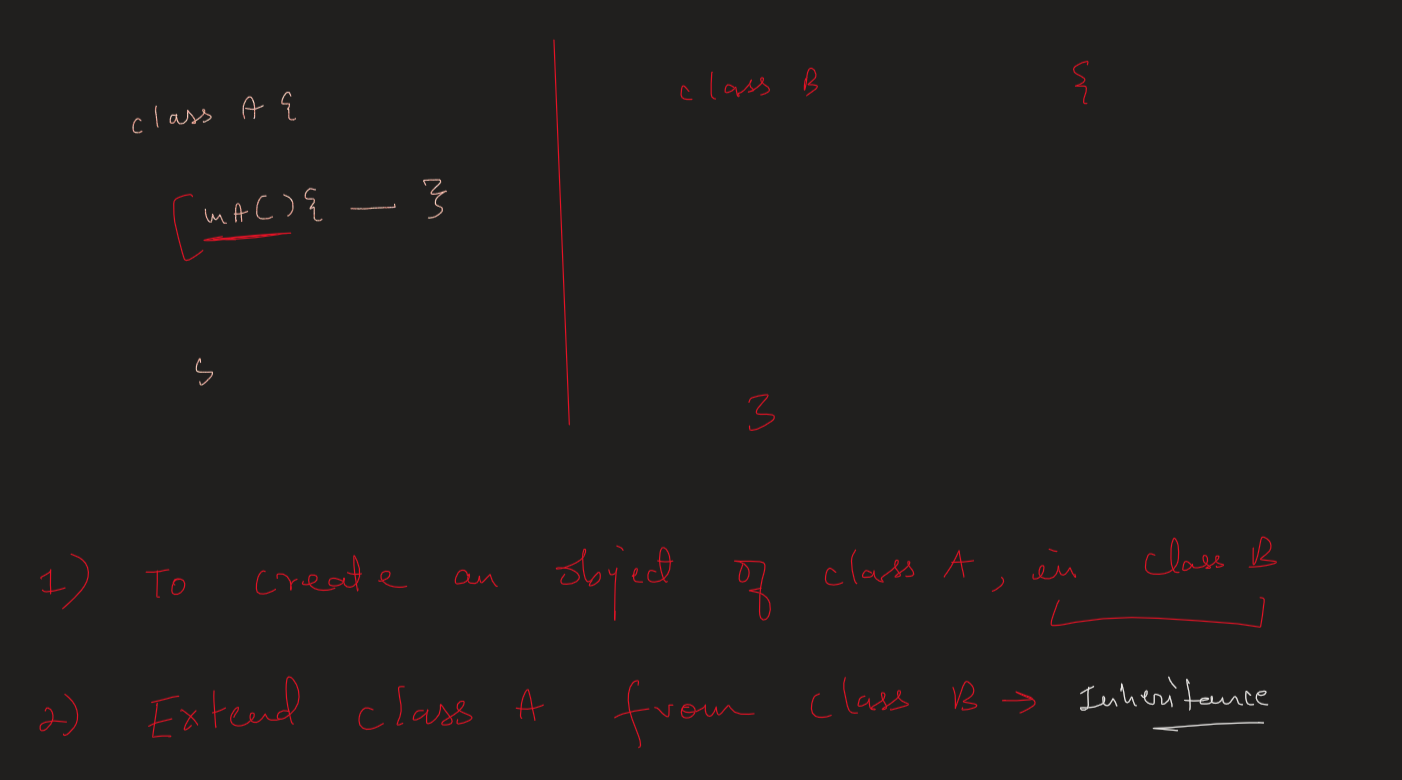 class A {
mA() { — }
}
class B {
}
1) To create an object of class A, in class B
2) Extend class A from class B → Inheritance